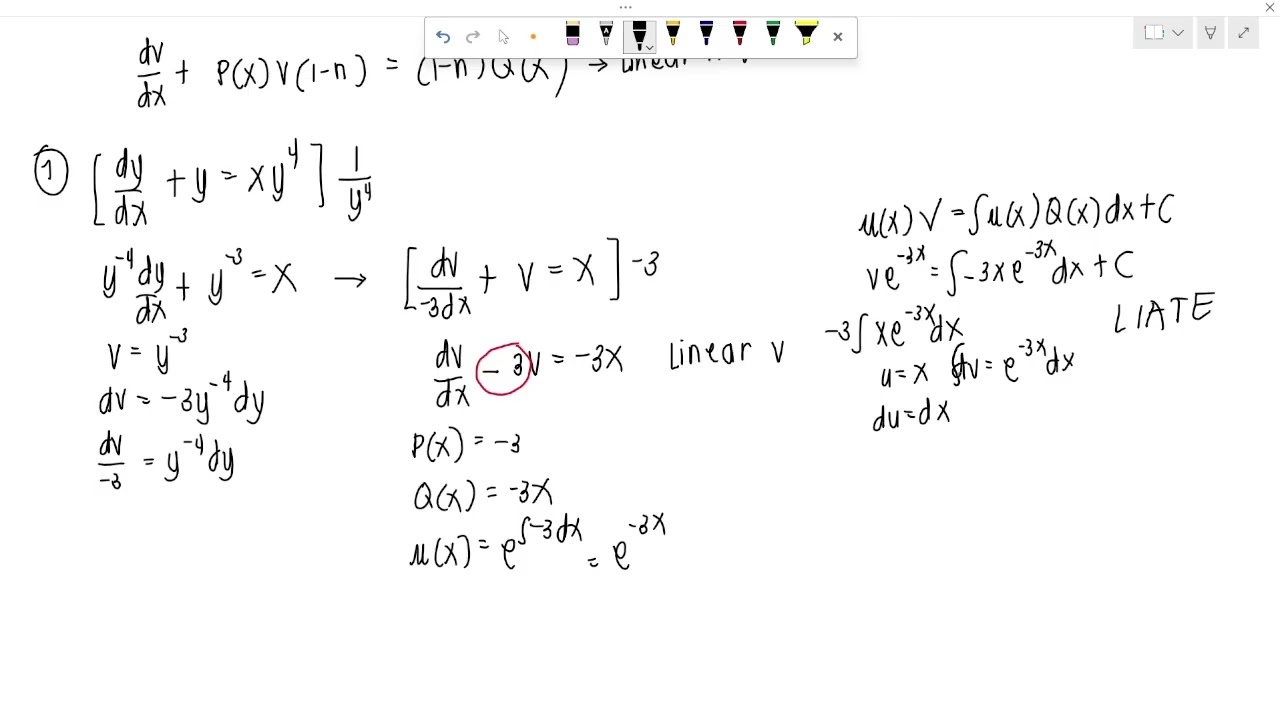 dv/dx + P(x)V(1-n) = (1-n)Q(x) → linear
① [dy/dx + y = xy⁴] 1/y⁴
y⁻⁴ dy/dx + y⁻³ = x → [dv/-3dx + v = x] -3
v = y⁻³
dv = -3y⁻⁴dy
dv/-3 = y⁻⁴dy
dv/dx - 3v = -3x Linear v
P(x) = -3
Q(x) = -3x
μ(x) = e^∫-3dx = e^-3x
μ(x)V = ∫μ(x)Q(x)dx + C
ve^-3x = ∫-3xe^-3x dx + C
-3∫xe^-3x dx
LIATE
u = x ∫dv = e^-3x dx
du = dx